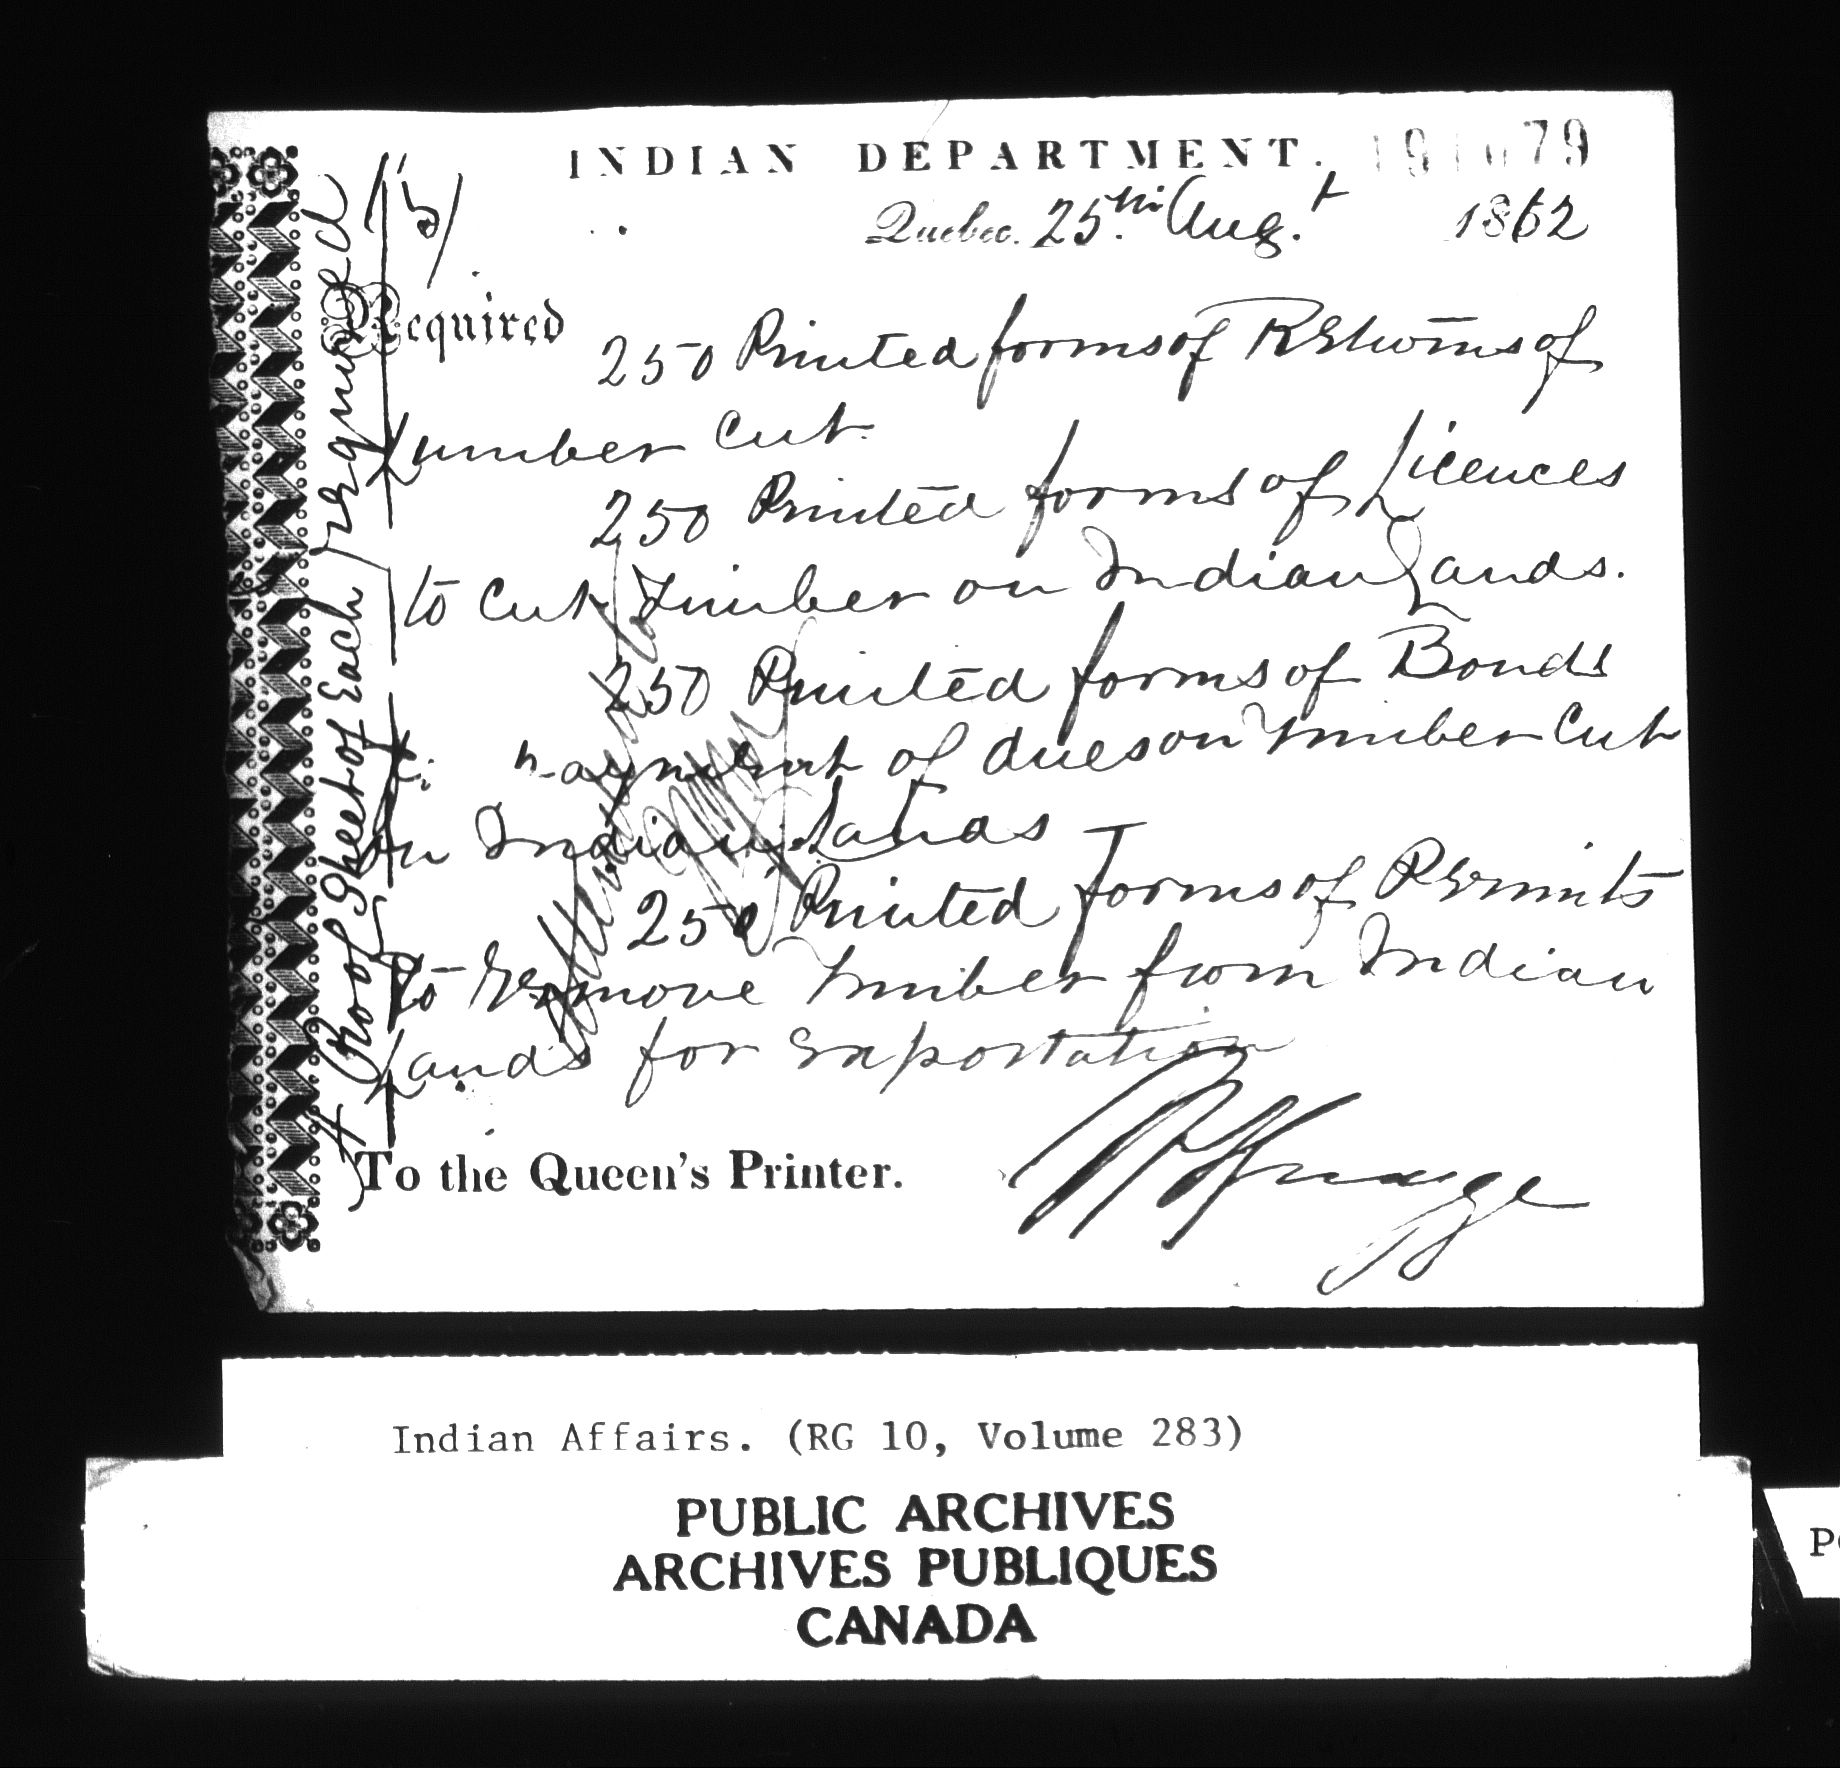 INDIAN DEPARTMENT.
Quebec. 25th Augt 1862
Required
250 Printed forms of Returns of
Lumber cut.
250 Printed forms of Licences
to cut Timber on Indian Lands.
250 Printed forms of Bonds
payment of dues on Timber Cut
on Indian Lands
250 Printed forms of Permits
to remove Timber from Indian
Lands for exportation
To the Queen's Printer.
A Proof Sheet of Each required
Indian Affairs. (RG 10, Volume 283)
PUBLIC ARCHIVES
ARCHIVES PUBLIQUES
CANADA